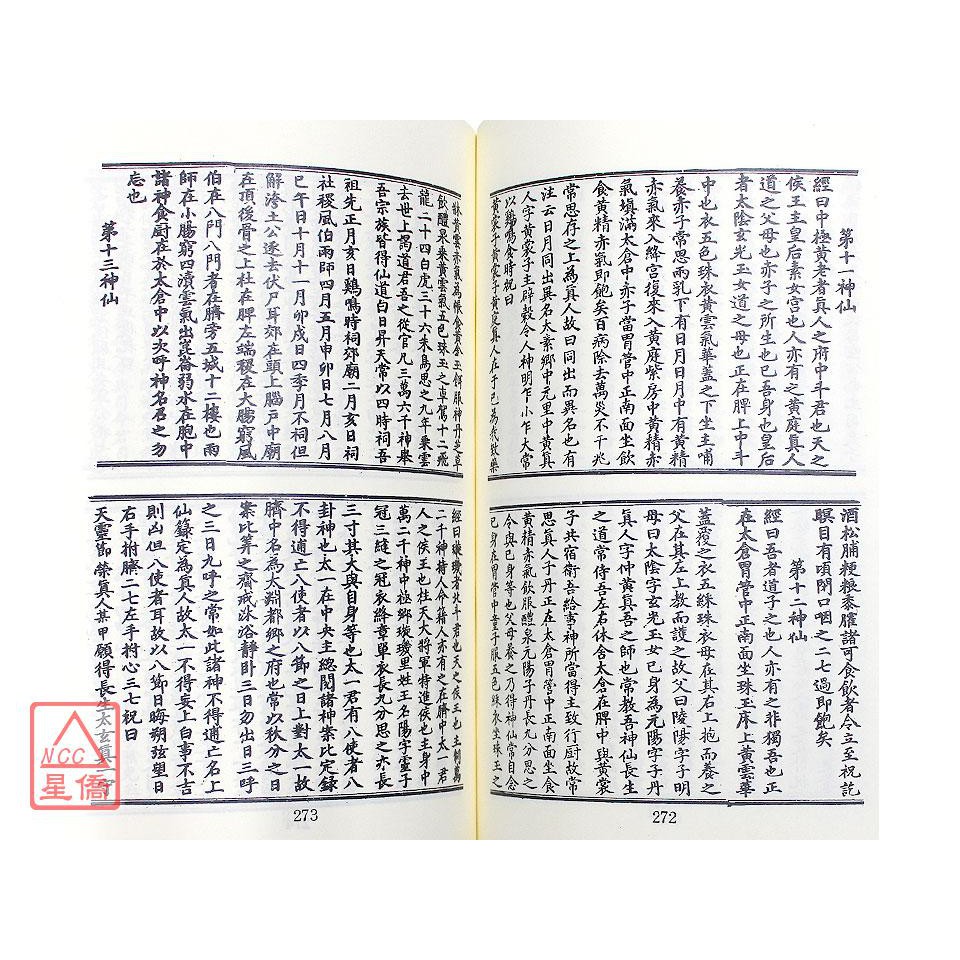 第十一神仙
經曰中極黃老者真人之府中斗君也天之
侯王主皇后素女宮也人亦有之黃庭真人
道之父母也亦子之所生也已吾身也皇后
者太陰玄光玉女道之母也正在脾上中斗
中也衣五色珠衣黃雲氣華蓋之下坐主哺
養赤子常思兩乳下有日月日月中有黃精
赤氣來入絳宮復來入黃庭紫房中黃精赤
氣填滿太倉中赤子當胃管中正南面坐飲
食黃精赤氣即飽矣百病除去萬災不干兆
常思存之上為真人故曰同出而異名也有
注云日月同出異名太素鄉中元里中黃真
人字黃裳子主辟穀令人神明乍小乍大常
以鷄鳴食時祝曰
黃裳子黃裳子黃庭真人在于己為我致藥
酒松脯粳粮黍臛諸可食飲者令立至祝訖
瞑目有頃閉口咽之二七過即飽矣
第十二神仙
經曰吾者道子之也人亦有之非獨吾也正
在太倉胃管中正南面坐珠玉牀上黃雲華
蓋覆之衣五綵珠衣母在其右上抱而養之
父在其左上教而護之故父曰陵陽字子丹
母曰太陰字玄光玉女已身為元陽字子丹
真人字仲黃真吾之師也常教吾神仙長生
之道常侍吾左右休舍太倉在脾中與黃裳
子共宿衛吾給事神所當得主致行廚故常
思真人子丹正在太倉胃管中正南面坐食
黃精赤氣飲服醴泉元陽子丹長九分思之
令與已身等也父母養之乃得神仙常自念
已身在胃管中童子服五色綵衣坐珠玉之
牀黃雲赤氣為帳食黃金玉餌服神丹芝草
飲醴泉乘黃雲氣五色珠玉之車駕十二飛
龍二十四白虎三十六朱鳥思之九年乘雲
去世上謁道君吾之從官凡三萬六千神舉
吾宗族皆得仙道白日昇天常以四時祠吾
祖先正月亥日鷄鳴時祠郊廟二月亥日祠
社稷風伯雨師四月五月申卯日七月八月
巳午日十月十一月卯戌日四季月不祠但
解滲土公逐去伏尸耳郊在頭上腦戶中廟
在頂後骨之上社在脾左端稷在大腸窮風
伯在八門八門者在臍旁五城十二樓也雨
師在小腸窮四瀆雲氣出崑崙弱水在胞中
諸神食廚在於太倉中以次呼神名召之勿
忘也
第十三神仙
經曰璇璣者北斗君也天之侯王也主制萬
二千神持人命籍人亦有之在臍中太一君
人之侯王也柱天大將軍特進侯也主身中
萬二千神中極鄉璇璣里姓王名陽字靈子
冠三縫之冠衣絳章單衣長九分思之亦長
三寸其大與自身等也太一君有八使者八
卦神也太一在中央主總閱諸神案比定錄
不得逋亡八使者以八節之日上對太一故
臍中名為太淵都鄉之府也常以秋分之日
案比算之齋戒沐浴靜卧三日勿出日三呼
之三日九呼之常如此諸神不得逋亡名上
仙籙定為真人故太一不得妄上白事不吉
則凶但八使者耳故以八節日晦朔弦望日
右手拊臍二七左手拊心三七祝曰
天靈節榮真人某甲願得長生太玄真一守
272
273
NCC
星僑